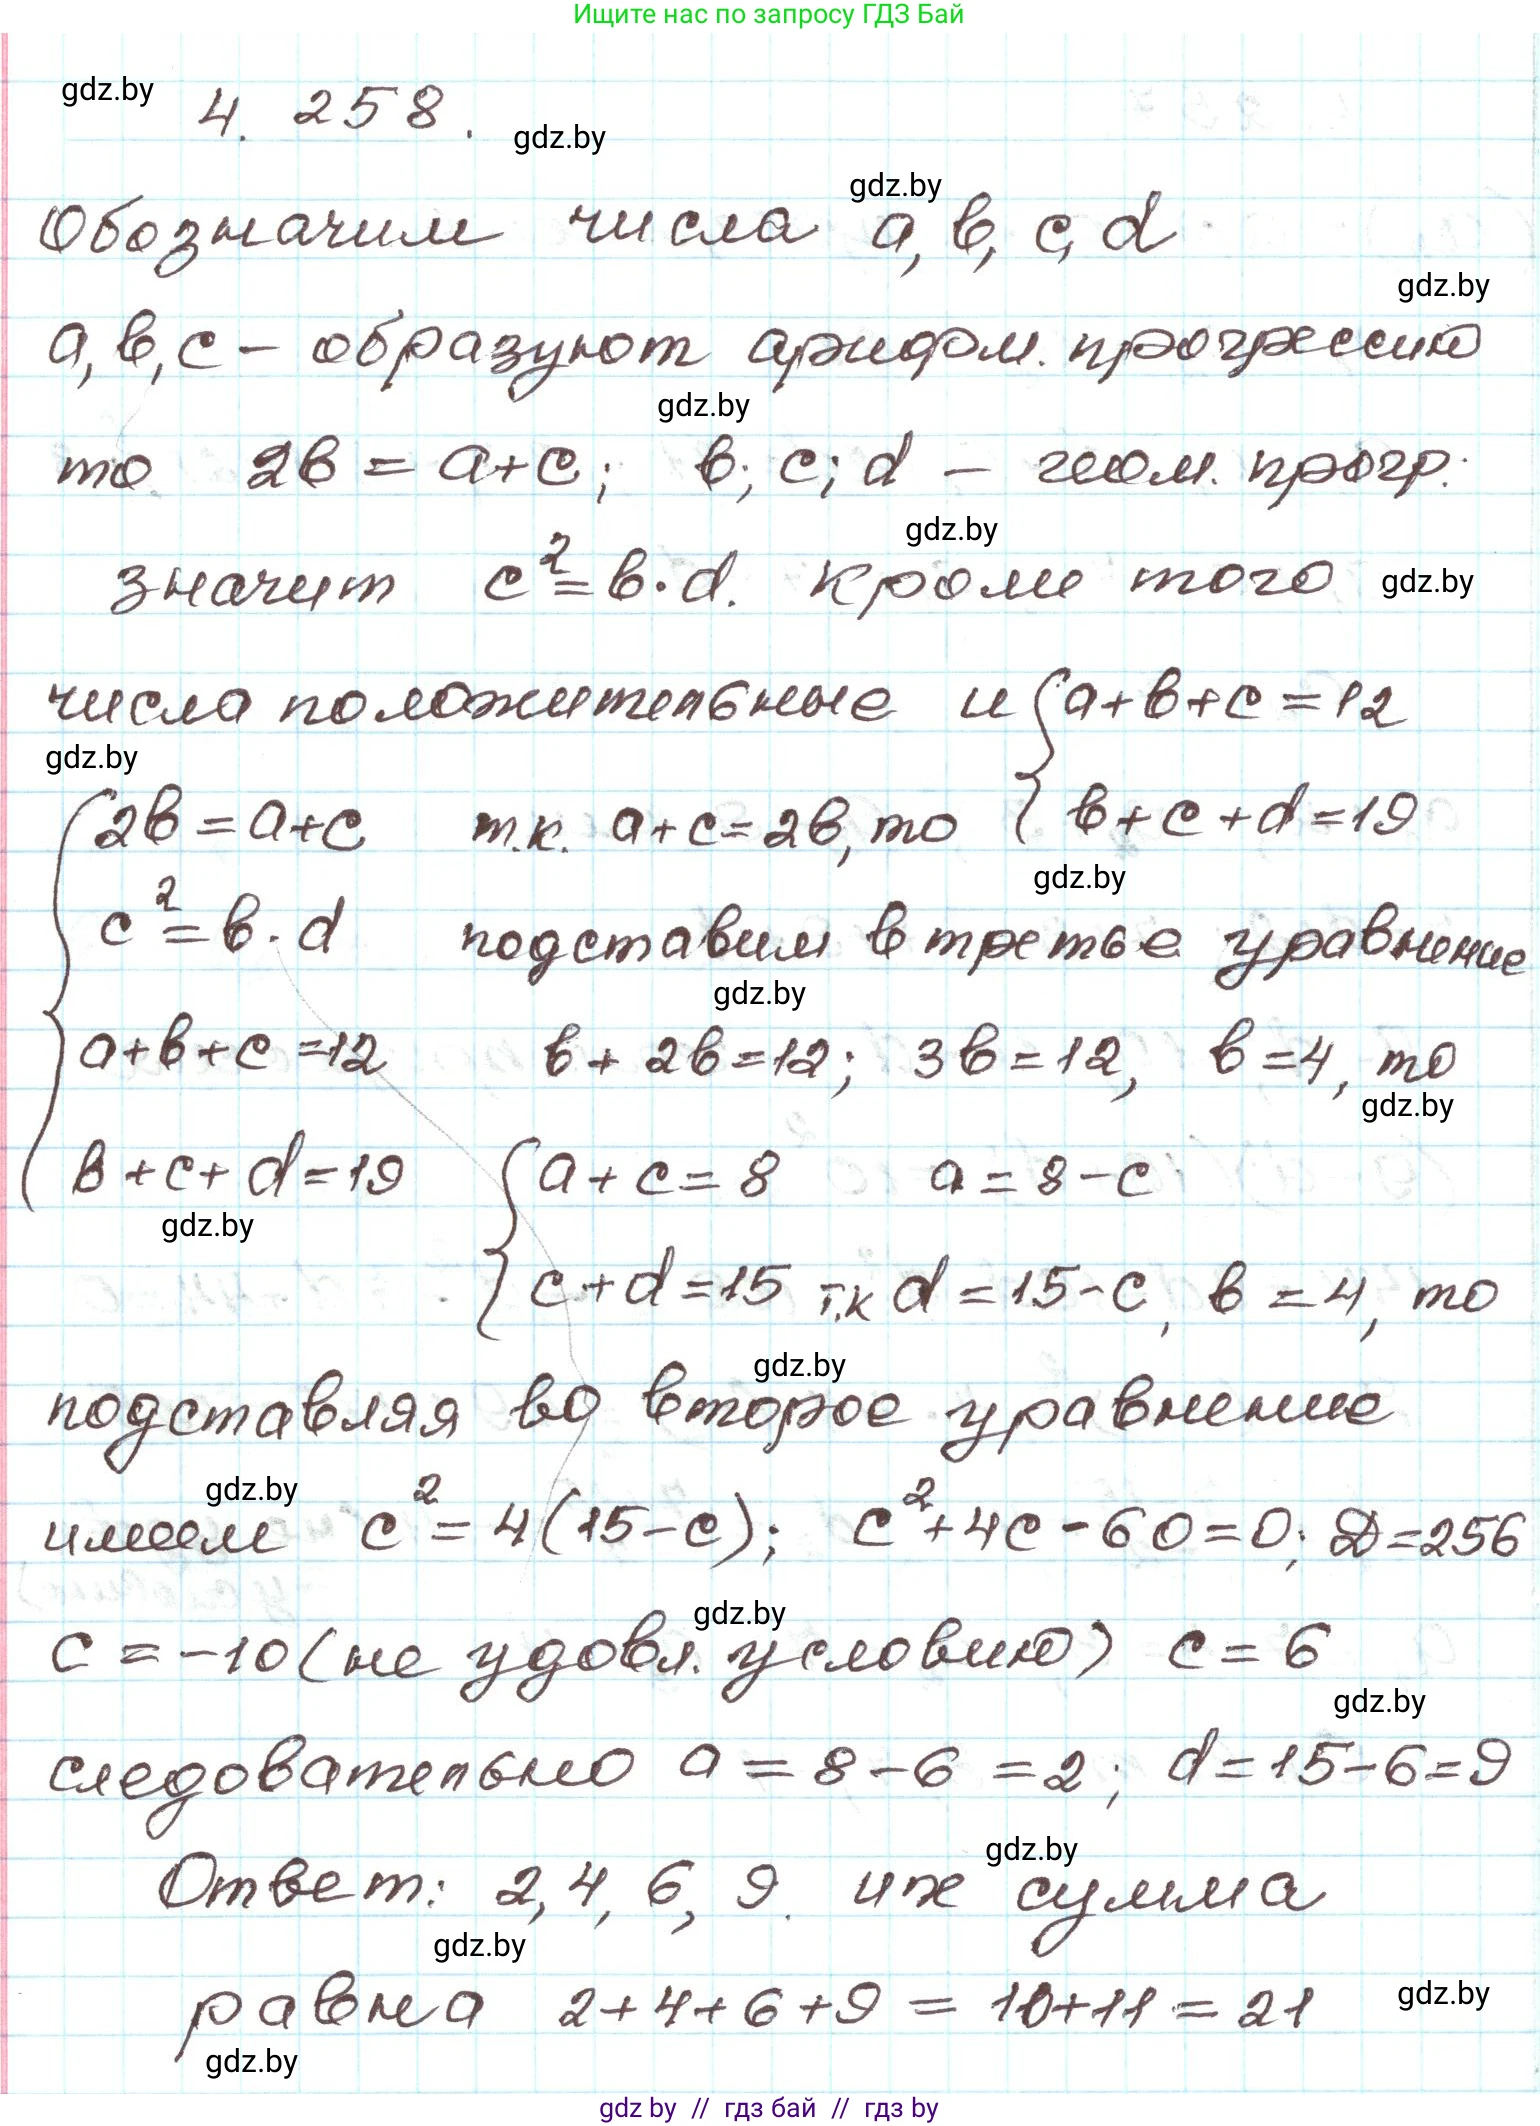 Ищите нас по запросу ГДЗ Бай
gdz.by
4. 258.
gdz.by
gdz.by
Обозначим числа a, в, c, d
gdz.by
a, в, c – образуют арифм. прогрессию
gdz.by
то 2в = a+c; в; c; d – геом. прогр.
gdz.by
значит c²=в·d. Кроме того gdz.by
числа положительные и {a+в+c=12
gdz.by
{2в=a+c т.к. a+c=2в, то { в+c+d=19
gdz.by
c²=в·d подставим в третье уравнение
gdz.by
a+в+c=12 в+2в=12; 3в=12, в=4, то
gdz.by
в+c+d=19 {a+c=8 a=8-c
gdz.by
c+d=15 т.к d=15-c, в=4, то
gdz.by
подставляя во второе уравнение
gdz.by
имеем c²=4(15-c); c²+4c-60=0; Д=256
gdz.by
c=-10(не удовл. условию) c=6
gdz.by
следовательно a=8-6=2; d=15-6=9
gdz.by
Ответ: 2, 4, 6, 9. их сумма
gdz.by
равна 2+4+6+9=10+11=21
gdz.by
gdz.by
gdz by // гдз бай // гдз by